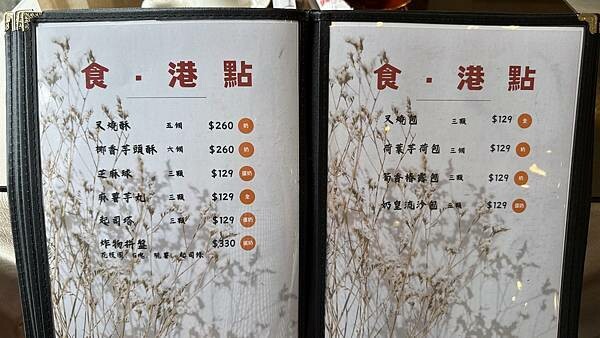 食・港點
叉燒酥 五個 $260 奶
椰香芋頭酥 六個 $260 奶
芝麻球 三顆 $129 蛋奶
麻薯芋丸 三顆 $129 全
起司塔 三顆 $129 蛋奶
炸物拼盤 $330 蛋奶
花枝圓 脆薯 起司條
食・港點
叉燒包 三顆 $129 全
荷葉芋荷包 三個 $129 奶
筍香椿露包 三顆 $129 奶
奶皇流沙包 三顆 $129 蛋奶